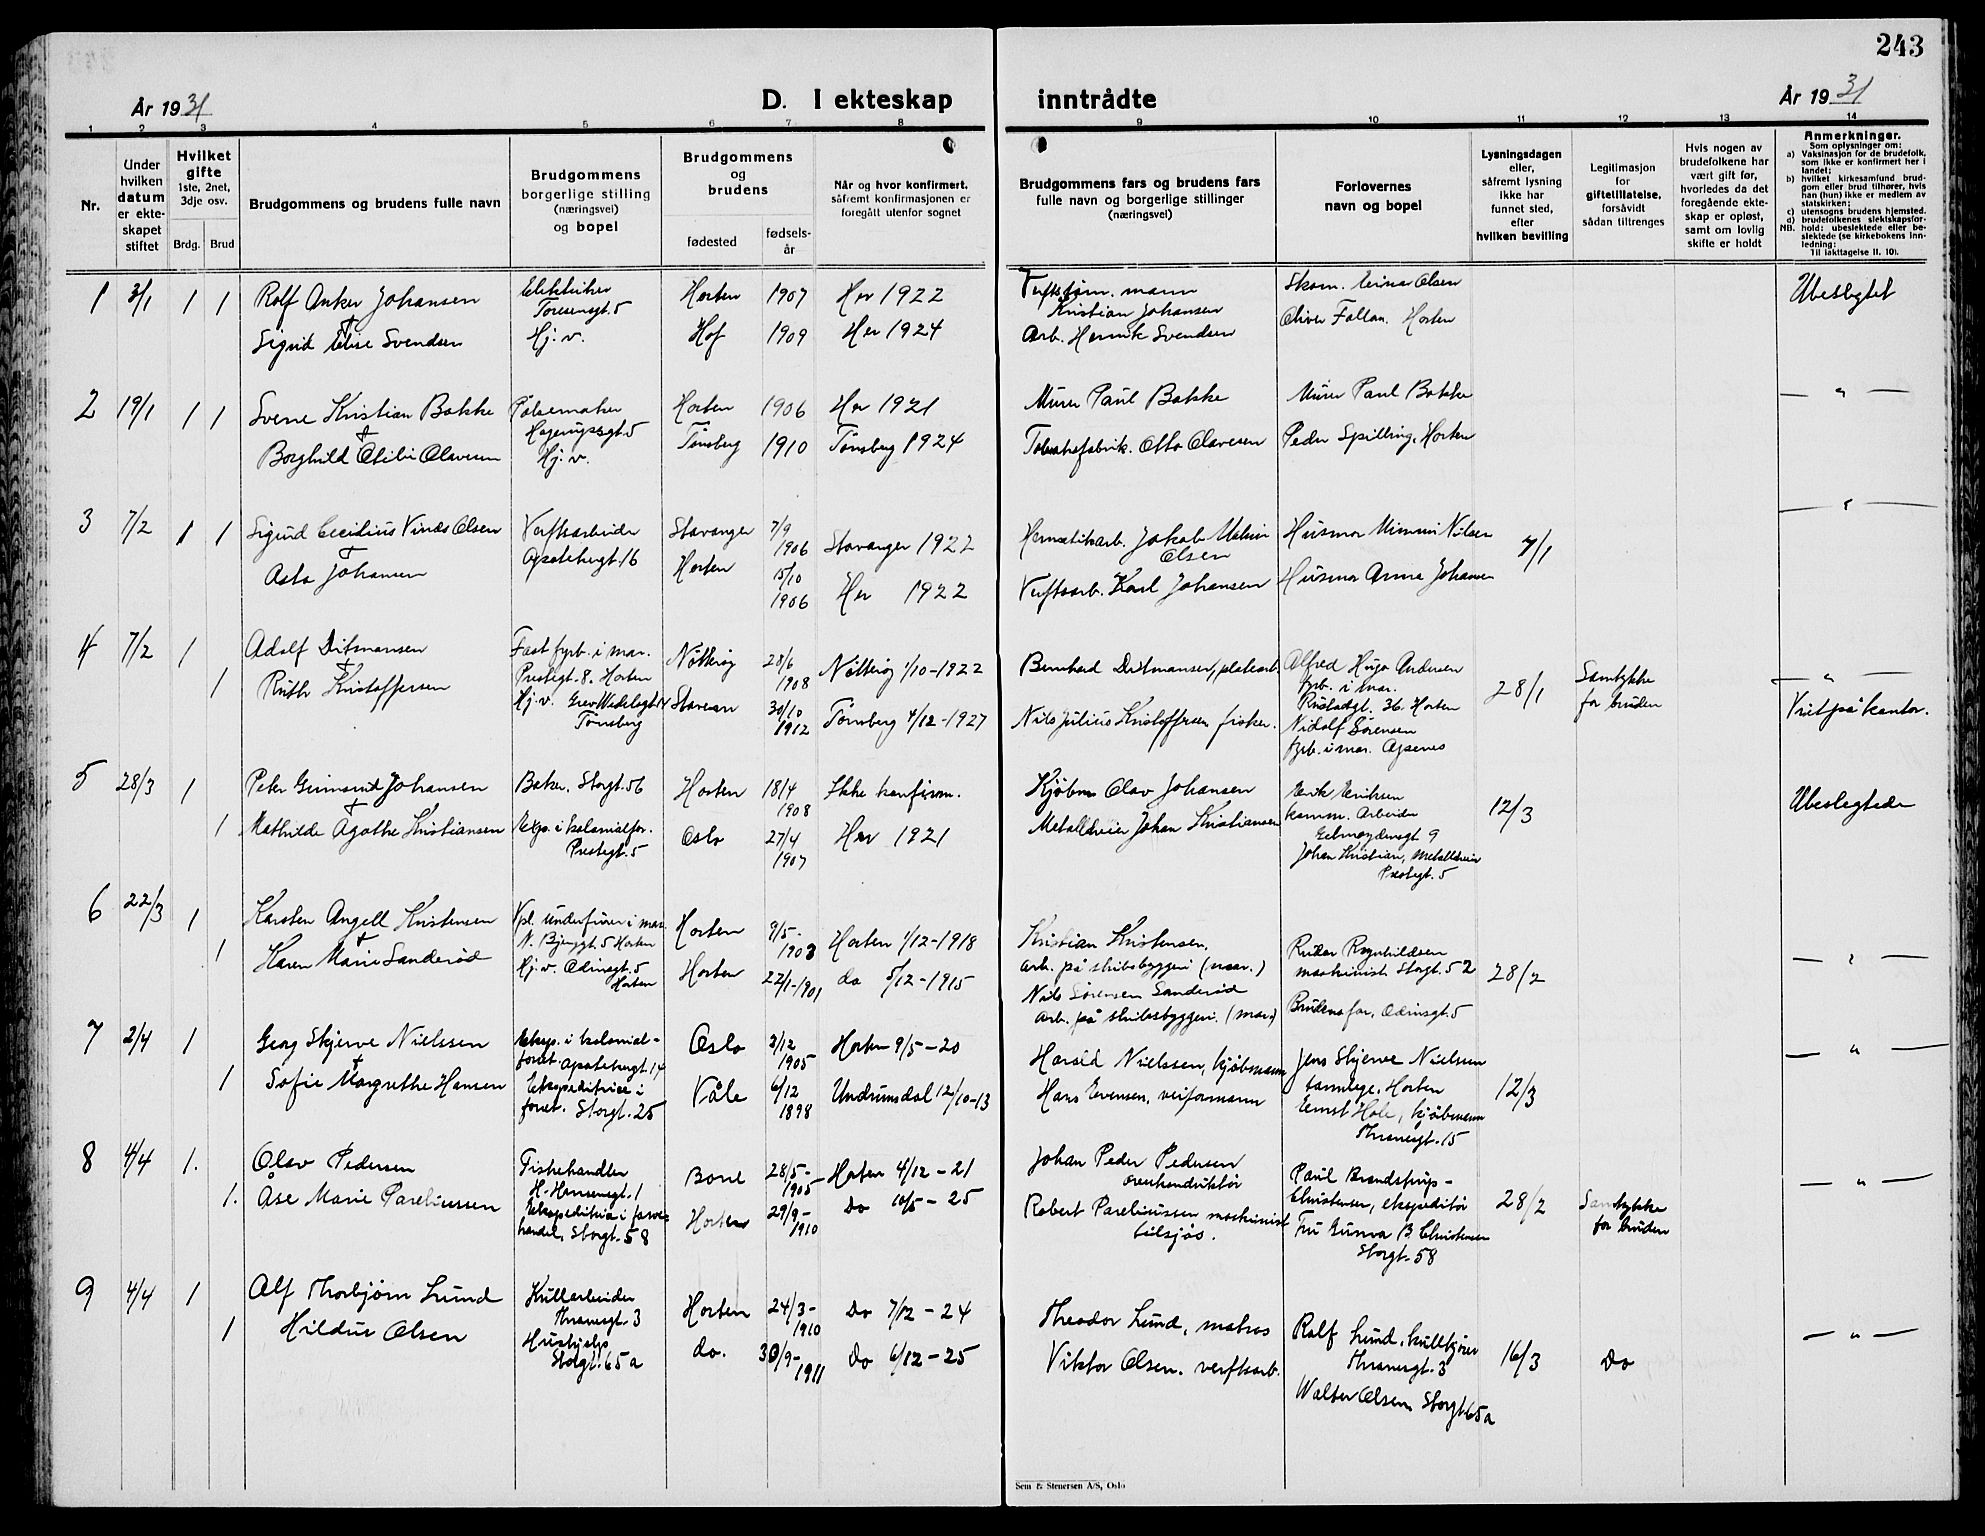 243
År 1931
D. I ekteskap inntrådte
År 1931
1 2 3 4 5 6 7 8 9 10 11 12 13 14
Nr.
Under hvilken datum er ekteskapet stiftet
Hvilket gifte 1ste, 2net, 3dje osv.
Brdg. Brud
Brudgommens og brudens fulle navn
Brudgommens borgerlige stilling (næringsvei) og bopel
Brudgommens og brudens
fødested
fødsels-år
Når og hvor konfirmert, såfremt konfirmasjonen er foregått utenfor sognet
Brudgommens fars og brudens fars fulle navn og borgerlige stillinger (næringsvei)
Forlovernes navn og bopel
Lysningsdagen eller, såfremt lysning ikke har funnet sted, efter hvilken bevilling
Legitimasjon for giftetillatelse, forsåvidt sådan tiltrenges
Hvis nogen av brudefolkene har vært gift før, hvorledes da det foregående ekteskap er opløst, samt om lovlig skifte er holdt
Anmerkninger.
Som oplysninger om:
a) Vaksinasjon for de brudefolk, som ikke er konfirmert her i landet;
b) hvilket kirkesamfund brudgom eller brud tilhører, hvis han (hun) ikke er medlem av statskirken;
c) utensogns brudens hjemsted.
d) brudefolkenes slektskapsforhold: ubeslektede eller beslektede (se kirkebokens innledning:
NB.
Til iakttagelse II. 10).
1 3/1 1 1 Rolf Anker Johansen Elektriker Toresensgt. 5 Horten 1907 Her 1922 Kristian Johansen Skom. Olsen Ubeslegtet
Sigrid Elise Svendsen Hj. v. Hof 1909 Her 1924 Arb. Henrik Svendsen Oliver Fallan. Horten
2 19/1 1 1 Sverre Kristian Bakke Pølsemaker Hagerupsgt. 5 Horten 1906 Her 1921 Murer Paul Bakke Murer Paul Bakke — " —
Borghild Otilie Olavesen Hj. v. Tønsberg 1910 Tønsberg 1924 Tobaksfabrik. Otto Olavesen Peder Spilling, Horten
3 7/2 1 1 Sigurd Cecilius Vinds Olsen Verftsarbeider Apotekergt. 16 Stavanger 7/9 1906 Stavanger 1922 Hermetikarb. Jakob Olsen Husmor Mimmi Nilsen 7/1 — " —
Asta Johansen Horten 15/10 1906 Her 1922 Verftsarb. Karl Johansen Husmor Anna Johansen
4 7/2 1 Adolf Ditmansen Fast fyrb. i mar. Prestegt. 8. Horten Nøtterøy 28/6 1908 Nøtterøy 1/10-1922 Bernhard Ditmansen, platearb. Alfred Hugo Andersen fyrb. i mar. Rustadgt. 36. Horten 28/1 Samtykke for bruden — " —
1 Ruth Kristoffersen Hj. v. Grev Wedelsgt. 14 Tønsberg Stavern 30/10 1912 Tønsberg 4/12-1927 Nils Julius Kristoffersen fisker. Nidolf Sørensen fyrb. i mar. Apenes Viet på kontor.
5 28/3 1 Peter Johansen Baker. Storgt. 56 Horten 18/4 1908 Ikke konfirm. Kjøbm Olav Johansen Erik Eriksen komm. Arbeider Gelmeydensgt 9 12/3 Ubeslegtede
1 Mathilde Agathe Kristiansen Eksp. i kolonialfor. Prestegt. 5 Oslo 27/4 1907 Her 1921 Metalldreier Johan Kristiansen Johan Kristian, metalldreier Prestegt. 5
6 22/3 1 Karsten Angell Kristensen Vpl. underfyrer i mar. N. Bjerggt. 5 Horten Horten 9/5- 1903 Horten 1/12-1918 Kristian Kristensen, arb. på skibsbyggeri (mar.) Reidar Ragnhildsen maskinist Storgt. 52 28/2 — " —
1 Karen Marie Sanderød Hj. v. Odinsgt. 5 Horten Horten 22/1-1901 do 5/12-1915 Nils Sørensen Sanderød arb. på skibsbyggeri. (mar.) Brudens far, Odinsgt. 5
7 2/4 1 Georg Skjerve Nielssen Eksp. i kolonial-foret. Apotekergt. 14 Oslo 2/12 1905 Horten 9/5-20 Harald Nielssen, kjøbmann Jens Skjerve Nielssen tannlege. Horten 12/3 — " —
1 Sofie Margrethe Hansen Ekspeditrise i foret. Storgt. 25 Våle 6/12 1898 Undrumsdal 12/10-13 Hans Evensen, veiformann Ernst Hole, kjøbmann Thranesgt. 15
8 4/4 1. Olav Pedersen Fiskehandler H. Hansensgt. 1 Borre 28/5- 1905 Horten 4/12-21 Johan Peder Pedersen overkonduktør Paul Brandstrup-Christensen, ekspeditør 28/2 Samtykke for bruden — " —
1. Åse Marie Pareliussen Ekspeditrise i handel, Storgt. 58 Horten 29/9- 1910 Do 10/5-25 Robert Pareliussen maskinist tilsjøs. Fru Gunva B. Christensen Storgt. 58
9 4/4 1 Alf Thorbjørn Lund Kullarbeider Thranesgt. 3 Horten 24/3- 1910 Do 7/12-24 Theodor Lund, matros Rolf Lund, kullkjører Thranesgt. 3 16/3 Do — " —
1 Hildur Olsen Hushjelp Storgt. 65a do. 30/9- 1911 Do 6/12-25 Viktor Olsen. verftsarb. Walter Olsen, Storgt 65a
Sem & Stenersen A/S, Oslo